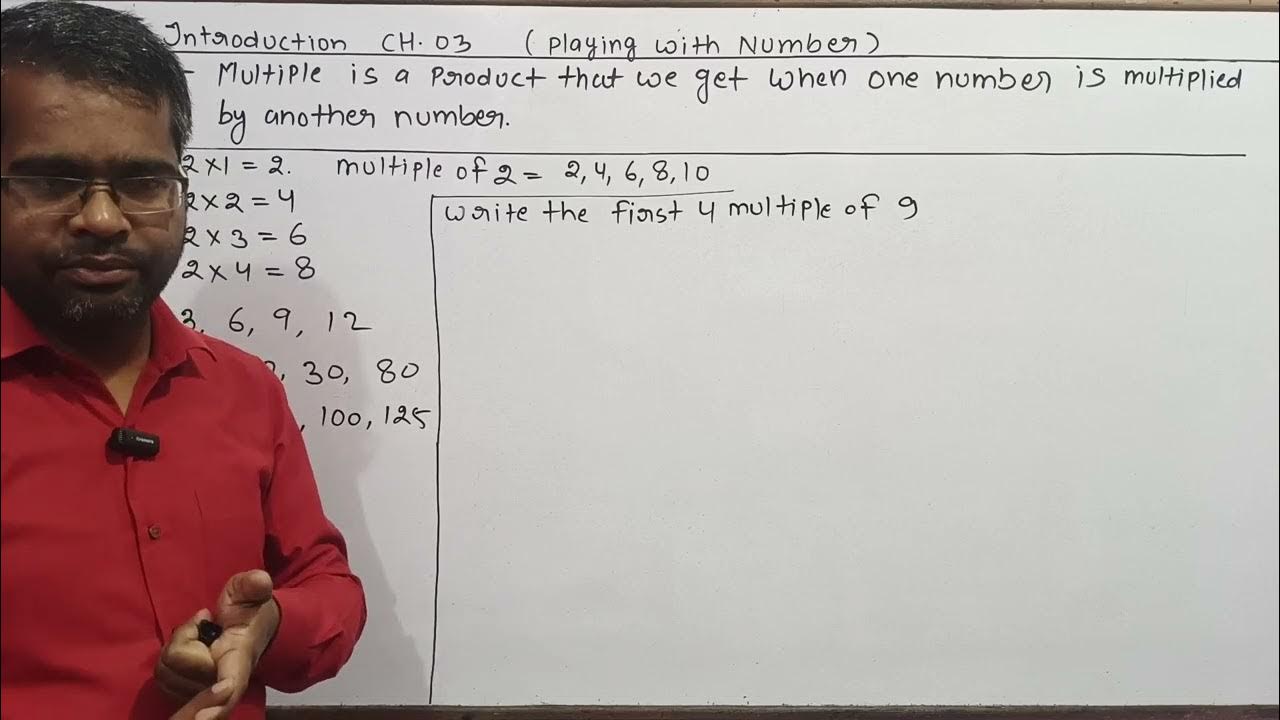 Introduction CH. 03 (Playing with Number)
- Multiple is a Product that we get when one number is multiplied
by another number.
2×1 = 2. multiple of 2 = 2, 4, 6, 8, 10
2×2 = 4
2×3 = 6
2×4 = 8
write the first 4 multiple of 9
3, 6, 9, 12
30, 80
, 100, 125